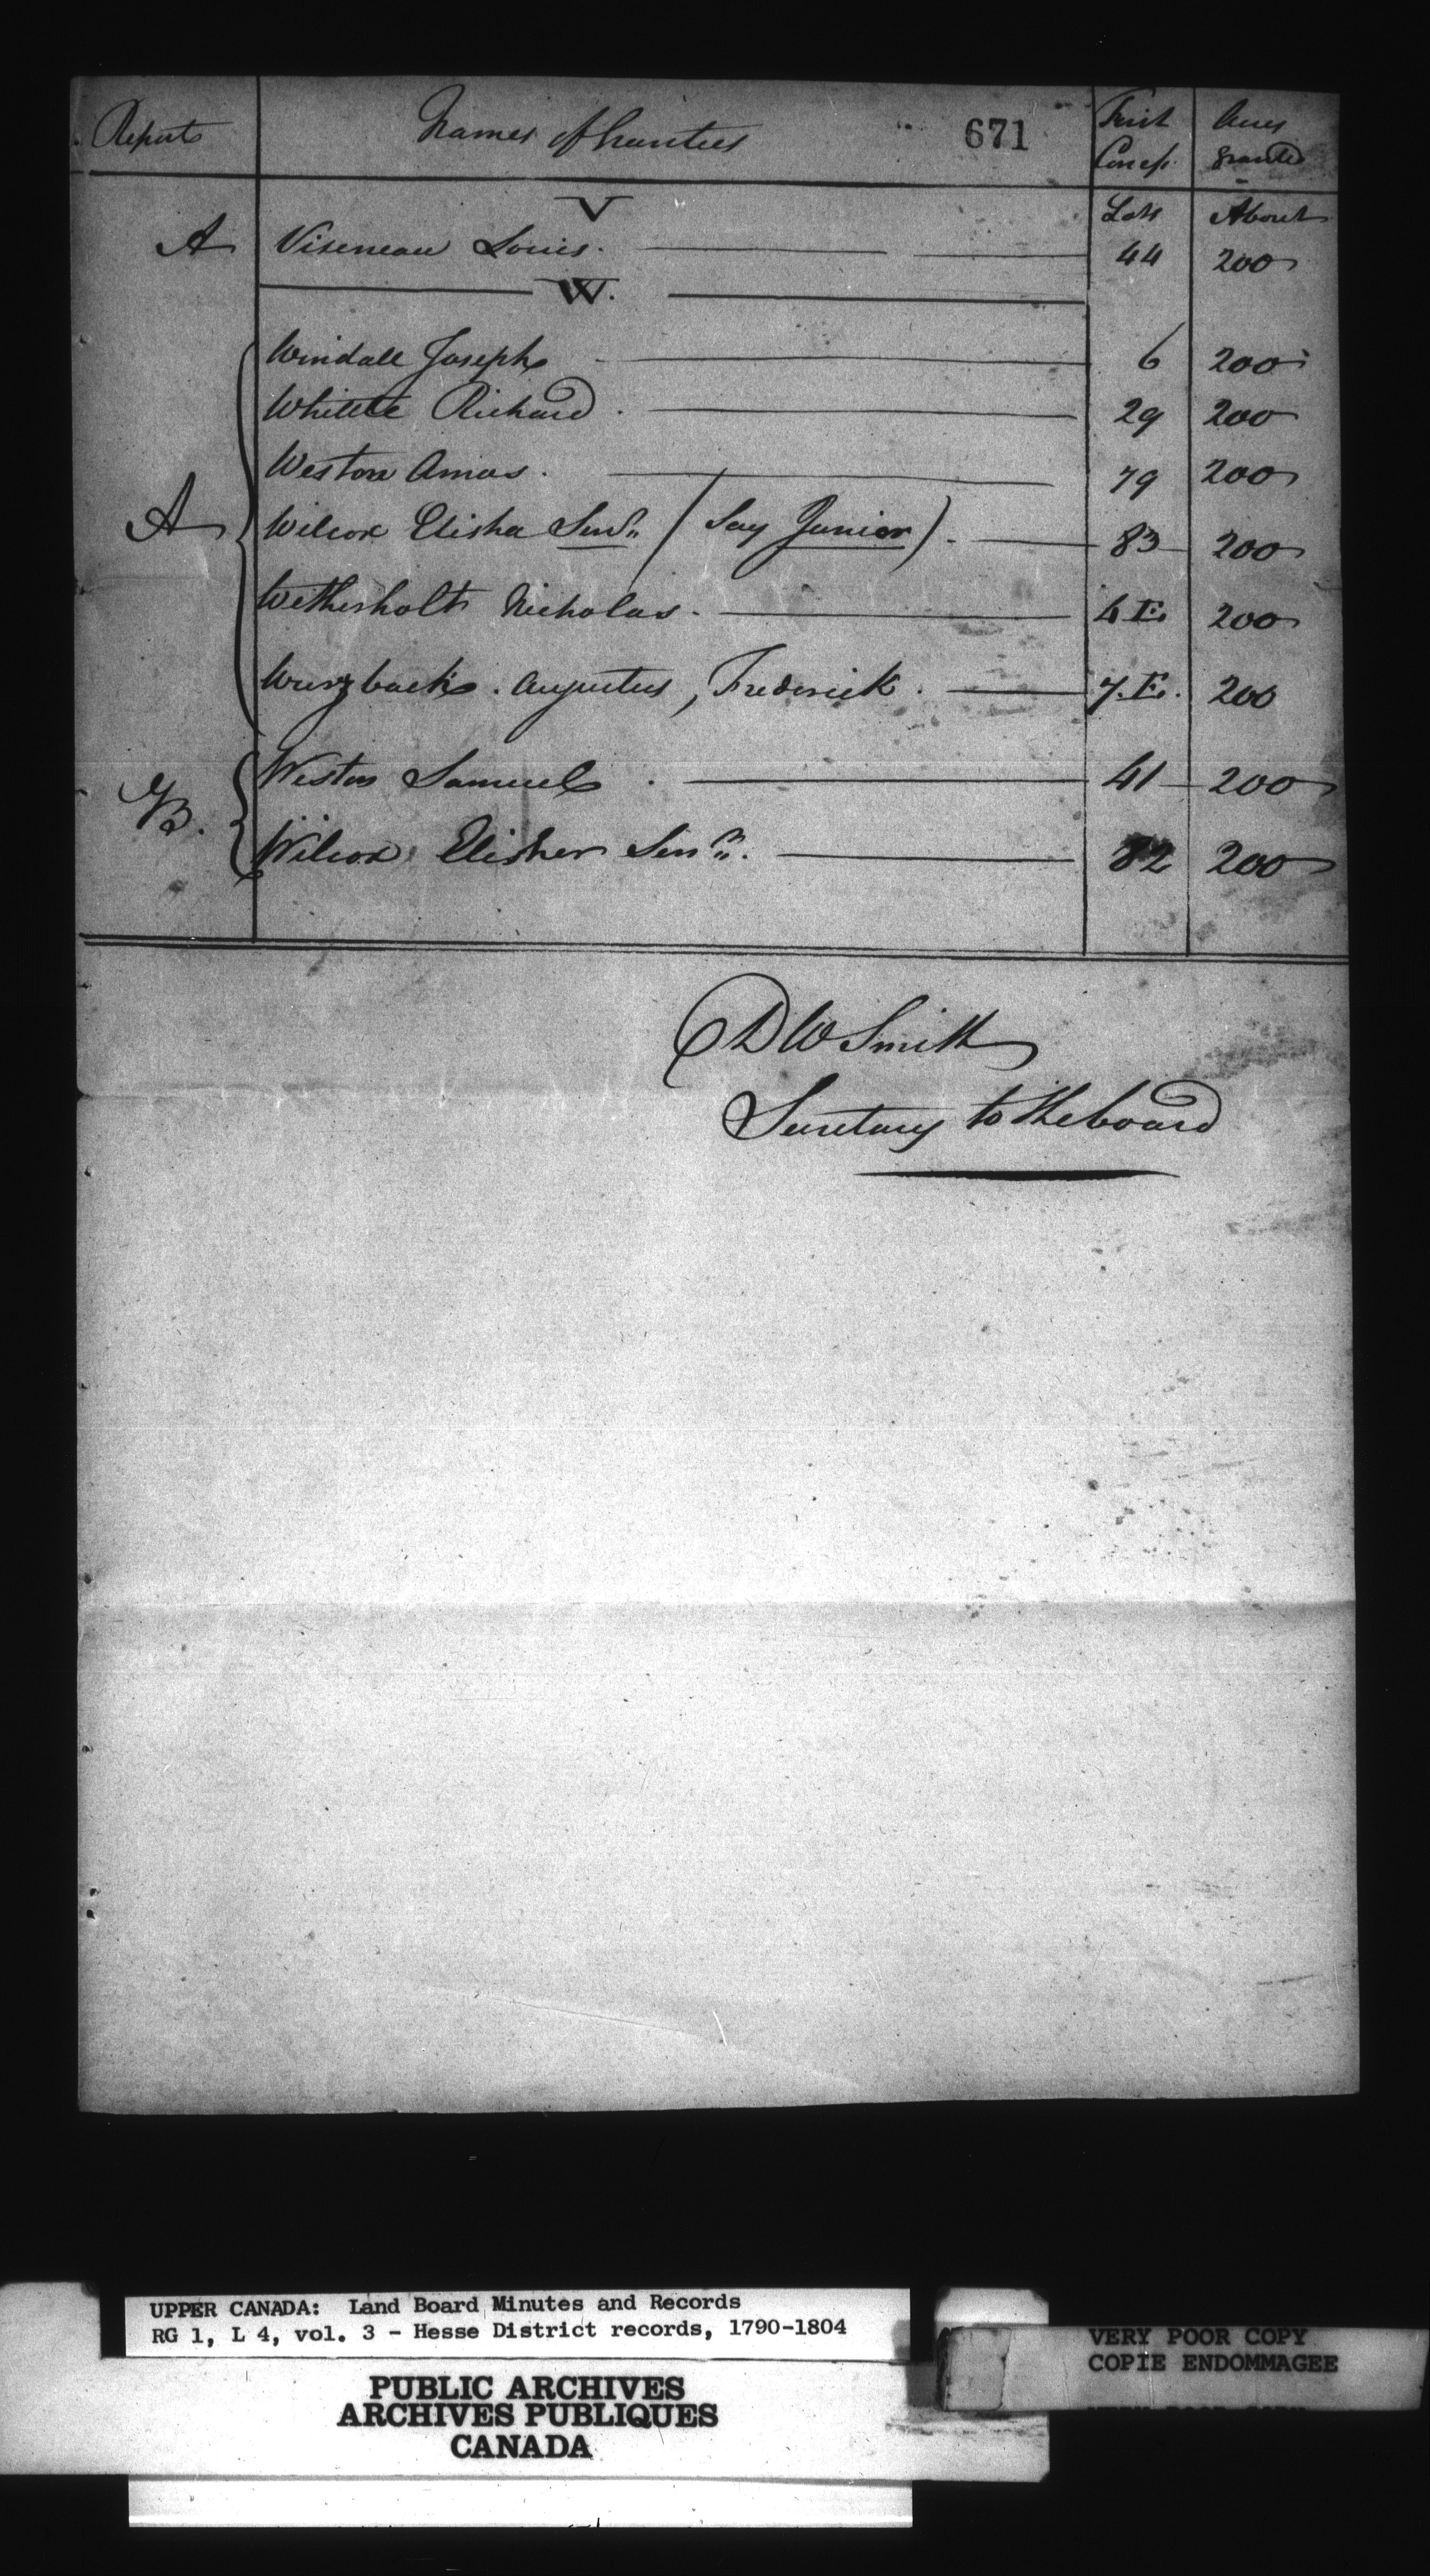 Reports Names of Grantees 671 First Concess. Acres granted
V Lots About
A Viseneau Louis. 44 200
W.
Windall Joseph 6 200
Whittle Richard. 29 200
Weston Amos. 79 200
A Wilcox Elisha Senr. (Say Junior). 83 200
Wetherholt Nicholas. 6 E. 200
Wurzbach. Augustus, Frederick. 7. E. 200
Weston Samuel. 41 200
B. Wilcox Elisher Senr. 82 200
D W Smith
Secretary to the board
UPPER CANADA: Land Board Minutes and Records
RG 1, L 4, vol. 3 - Hesse District records, 1790-1804
PUBLIC ARCHIVES
ARCHIVES PUBLIQUES
CANADA
VERY POOR COPY
COPIE ENDOMMAGEE